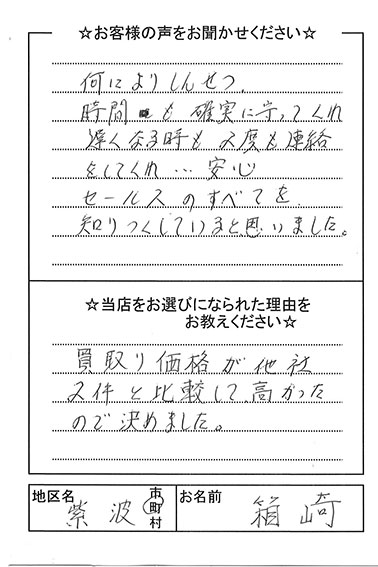 ☆お客様の声をお聞かせください☆
何によりしんせつ、
時間も確実に守ってくれ
遅くなる時も2度も連絡
をしてくれ…安心
セールスのすべてを
知りつくしていると思いました。
☆当店をお選びになられた理由を
お教えください☆
買取り価格が他社
2件と比較して、高かった
ので決めました。
地区名 紫波 市町村 お名前 箱崎